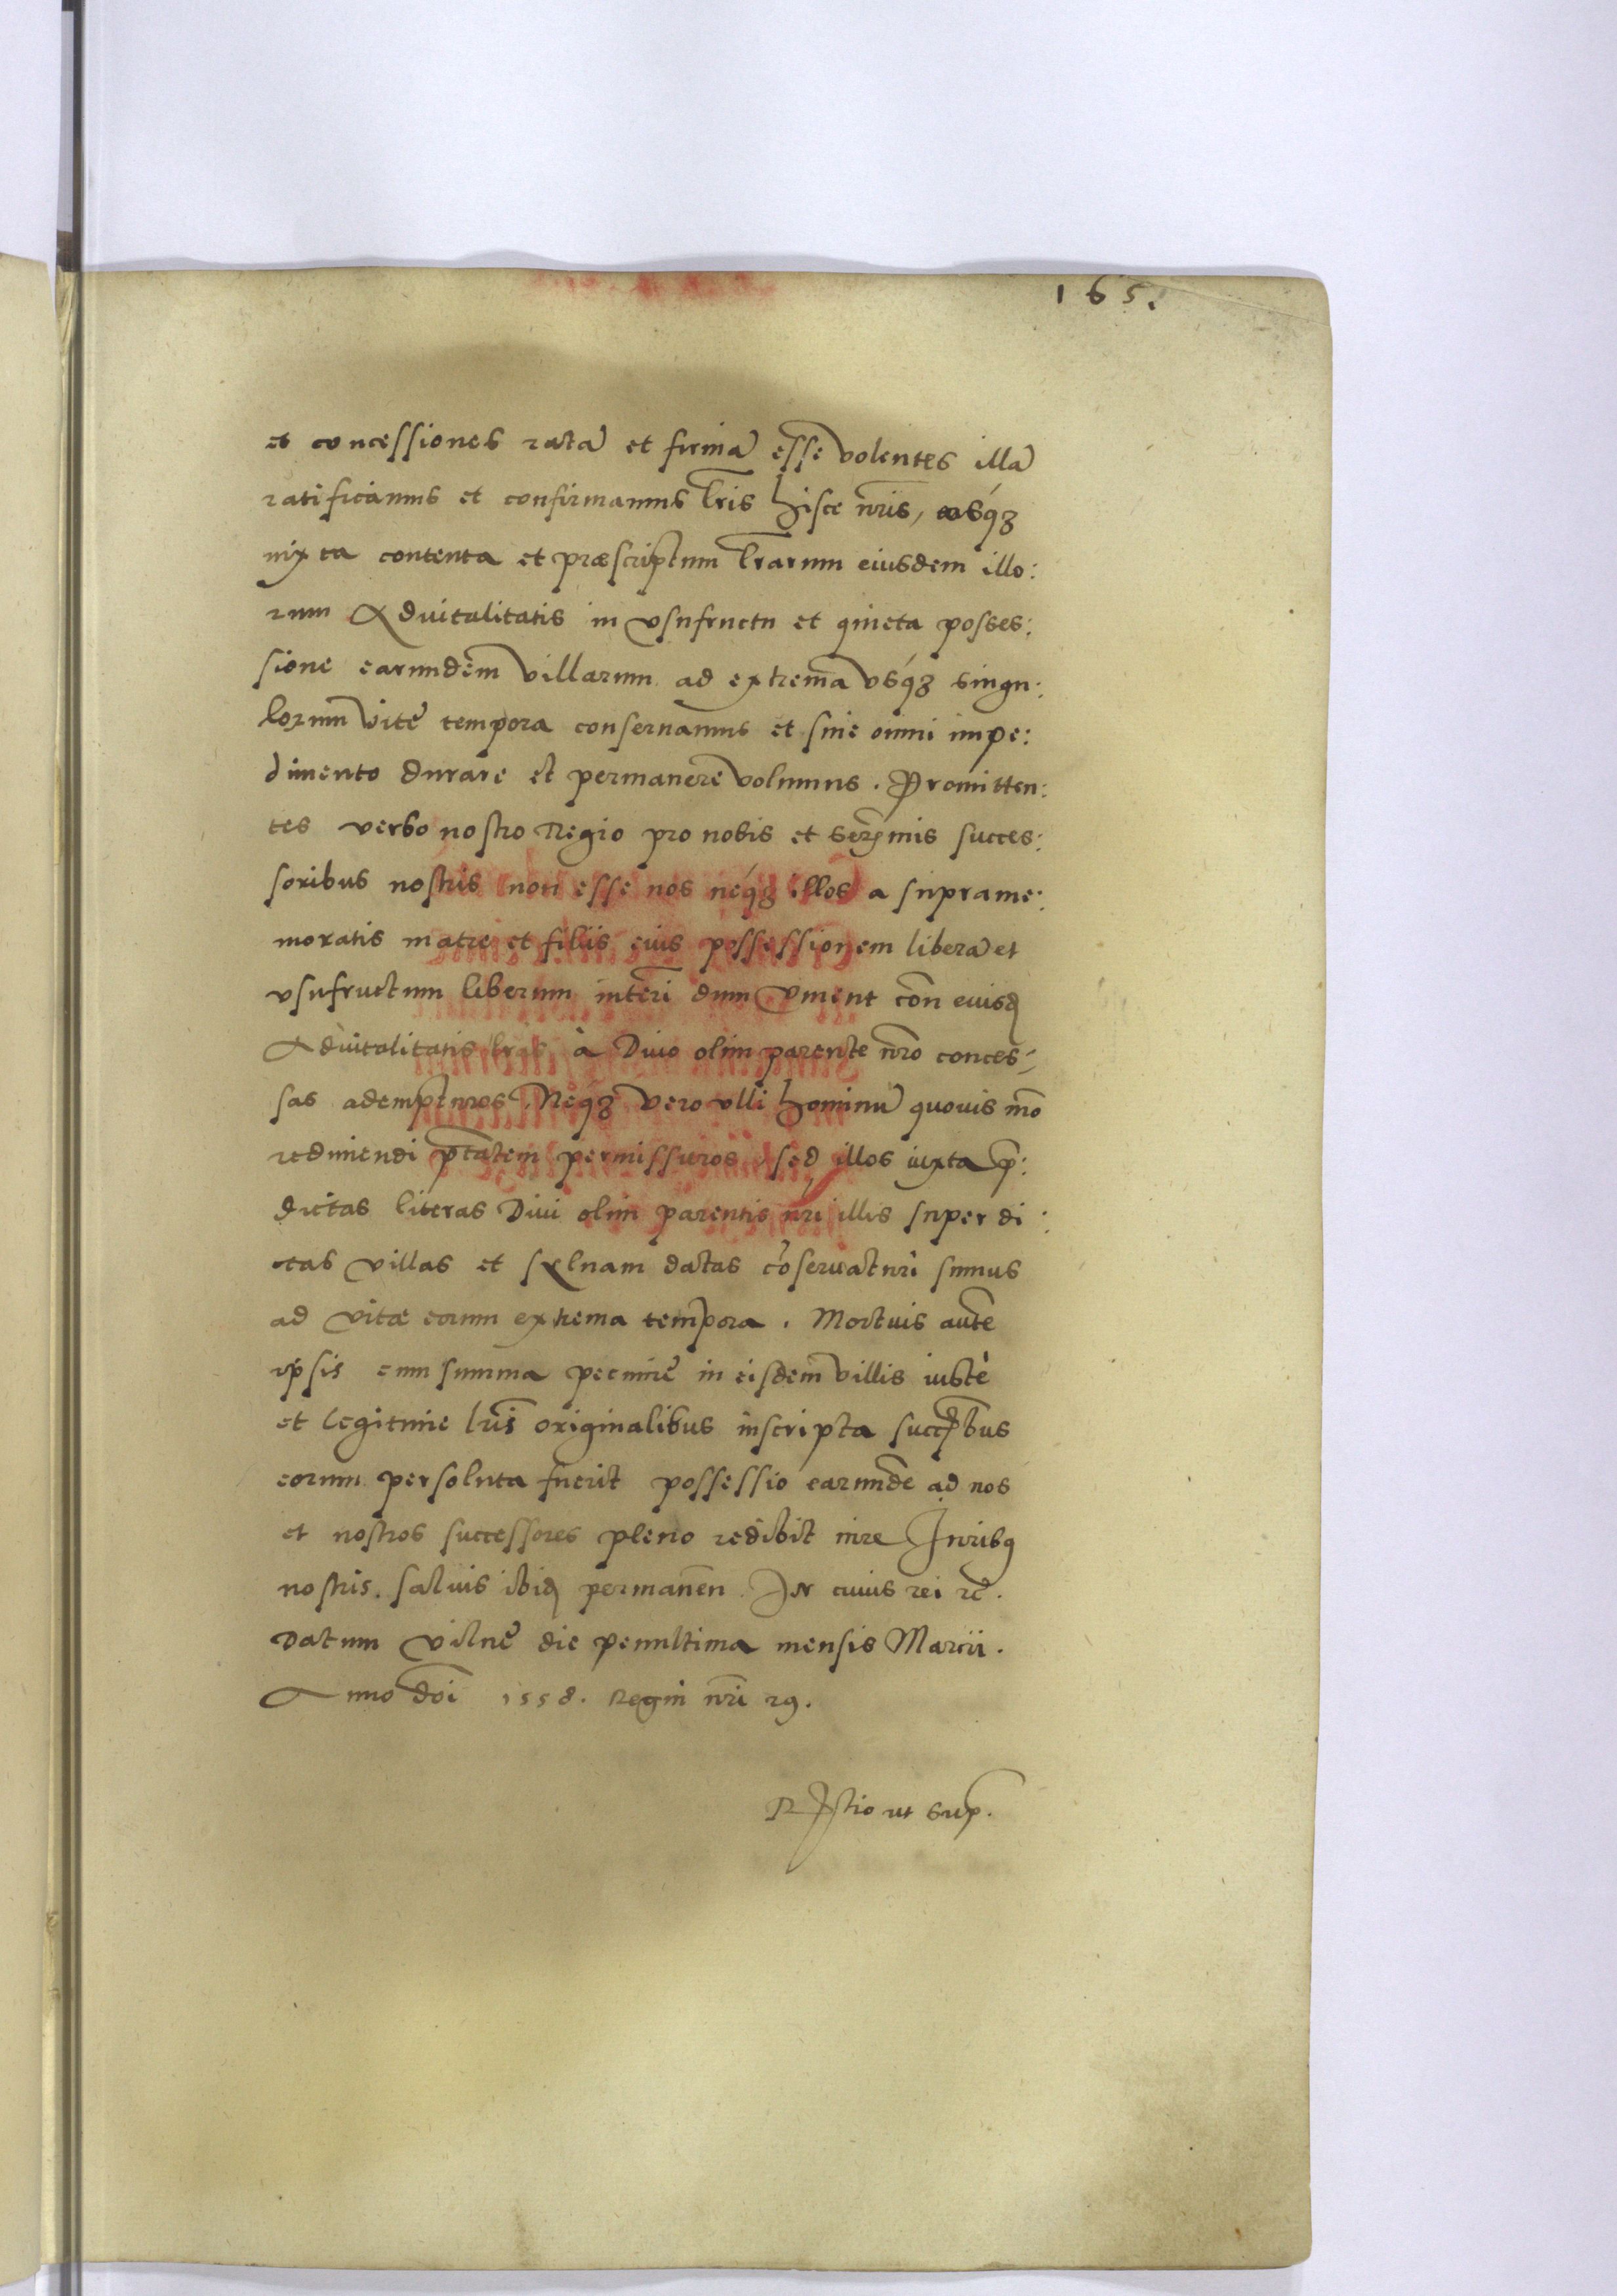 165.
et concessiones ratã et firmã esse volentes illã
ratificamus et confirmamus lr̃is hisce nr̃is, eosq́ȝ
iuxta contenta et præscriptum lr̃arum eiusdem illo:
rum Aduitalitatis in vsufructu et quieta posses:
sione earundem villarum ad extrema vsq́ȝ singu:
lorum vitę tempora conseruamus et sine omni impe:
dimento durare et permanere volumus. Promitten:
tes verbo nostro Regio pro nobis et Serẽmis succes:
soribus nostris non esse nos neq́ȝ illos a suprame:
moratis matre et filiis eius possessionem liberã et
vsufructum liberum interĩ dum viuent con̄ eiusd
Aduitalitatis lr̃as à Diuo olim parente nr̃o conces:
sas adempturos. Neq́ȝ vero vlli hominũ quouis mõ
redimendi ptãtem permissuros, sed illos iuxta p̃:
dictas literas Diui olim parentis nr̃i illis super di:
ctas villas et syluam datas cõseruaturi sumus
ad vitæ eorum extrema tempora. Mortuis autẽ
ipsis cum summa pecunię in eisdem villis iustè
et legitime lr̃is originalibus inscripta succ̃bus
eorum persoluta fuerit possessio earundẽ ad nos
et nostros successores pleno redibit iure Iuribȝ
nostris saluis ibid permanen̄. In cuius rei ꝛc̃.
Datum Vilnę die penultima mensis Marcii.
Anno dõi 1558. Regni nr̃i 29.
Rl̃atio ut sup̃.